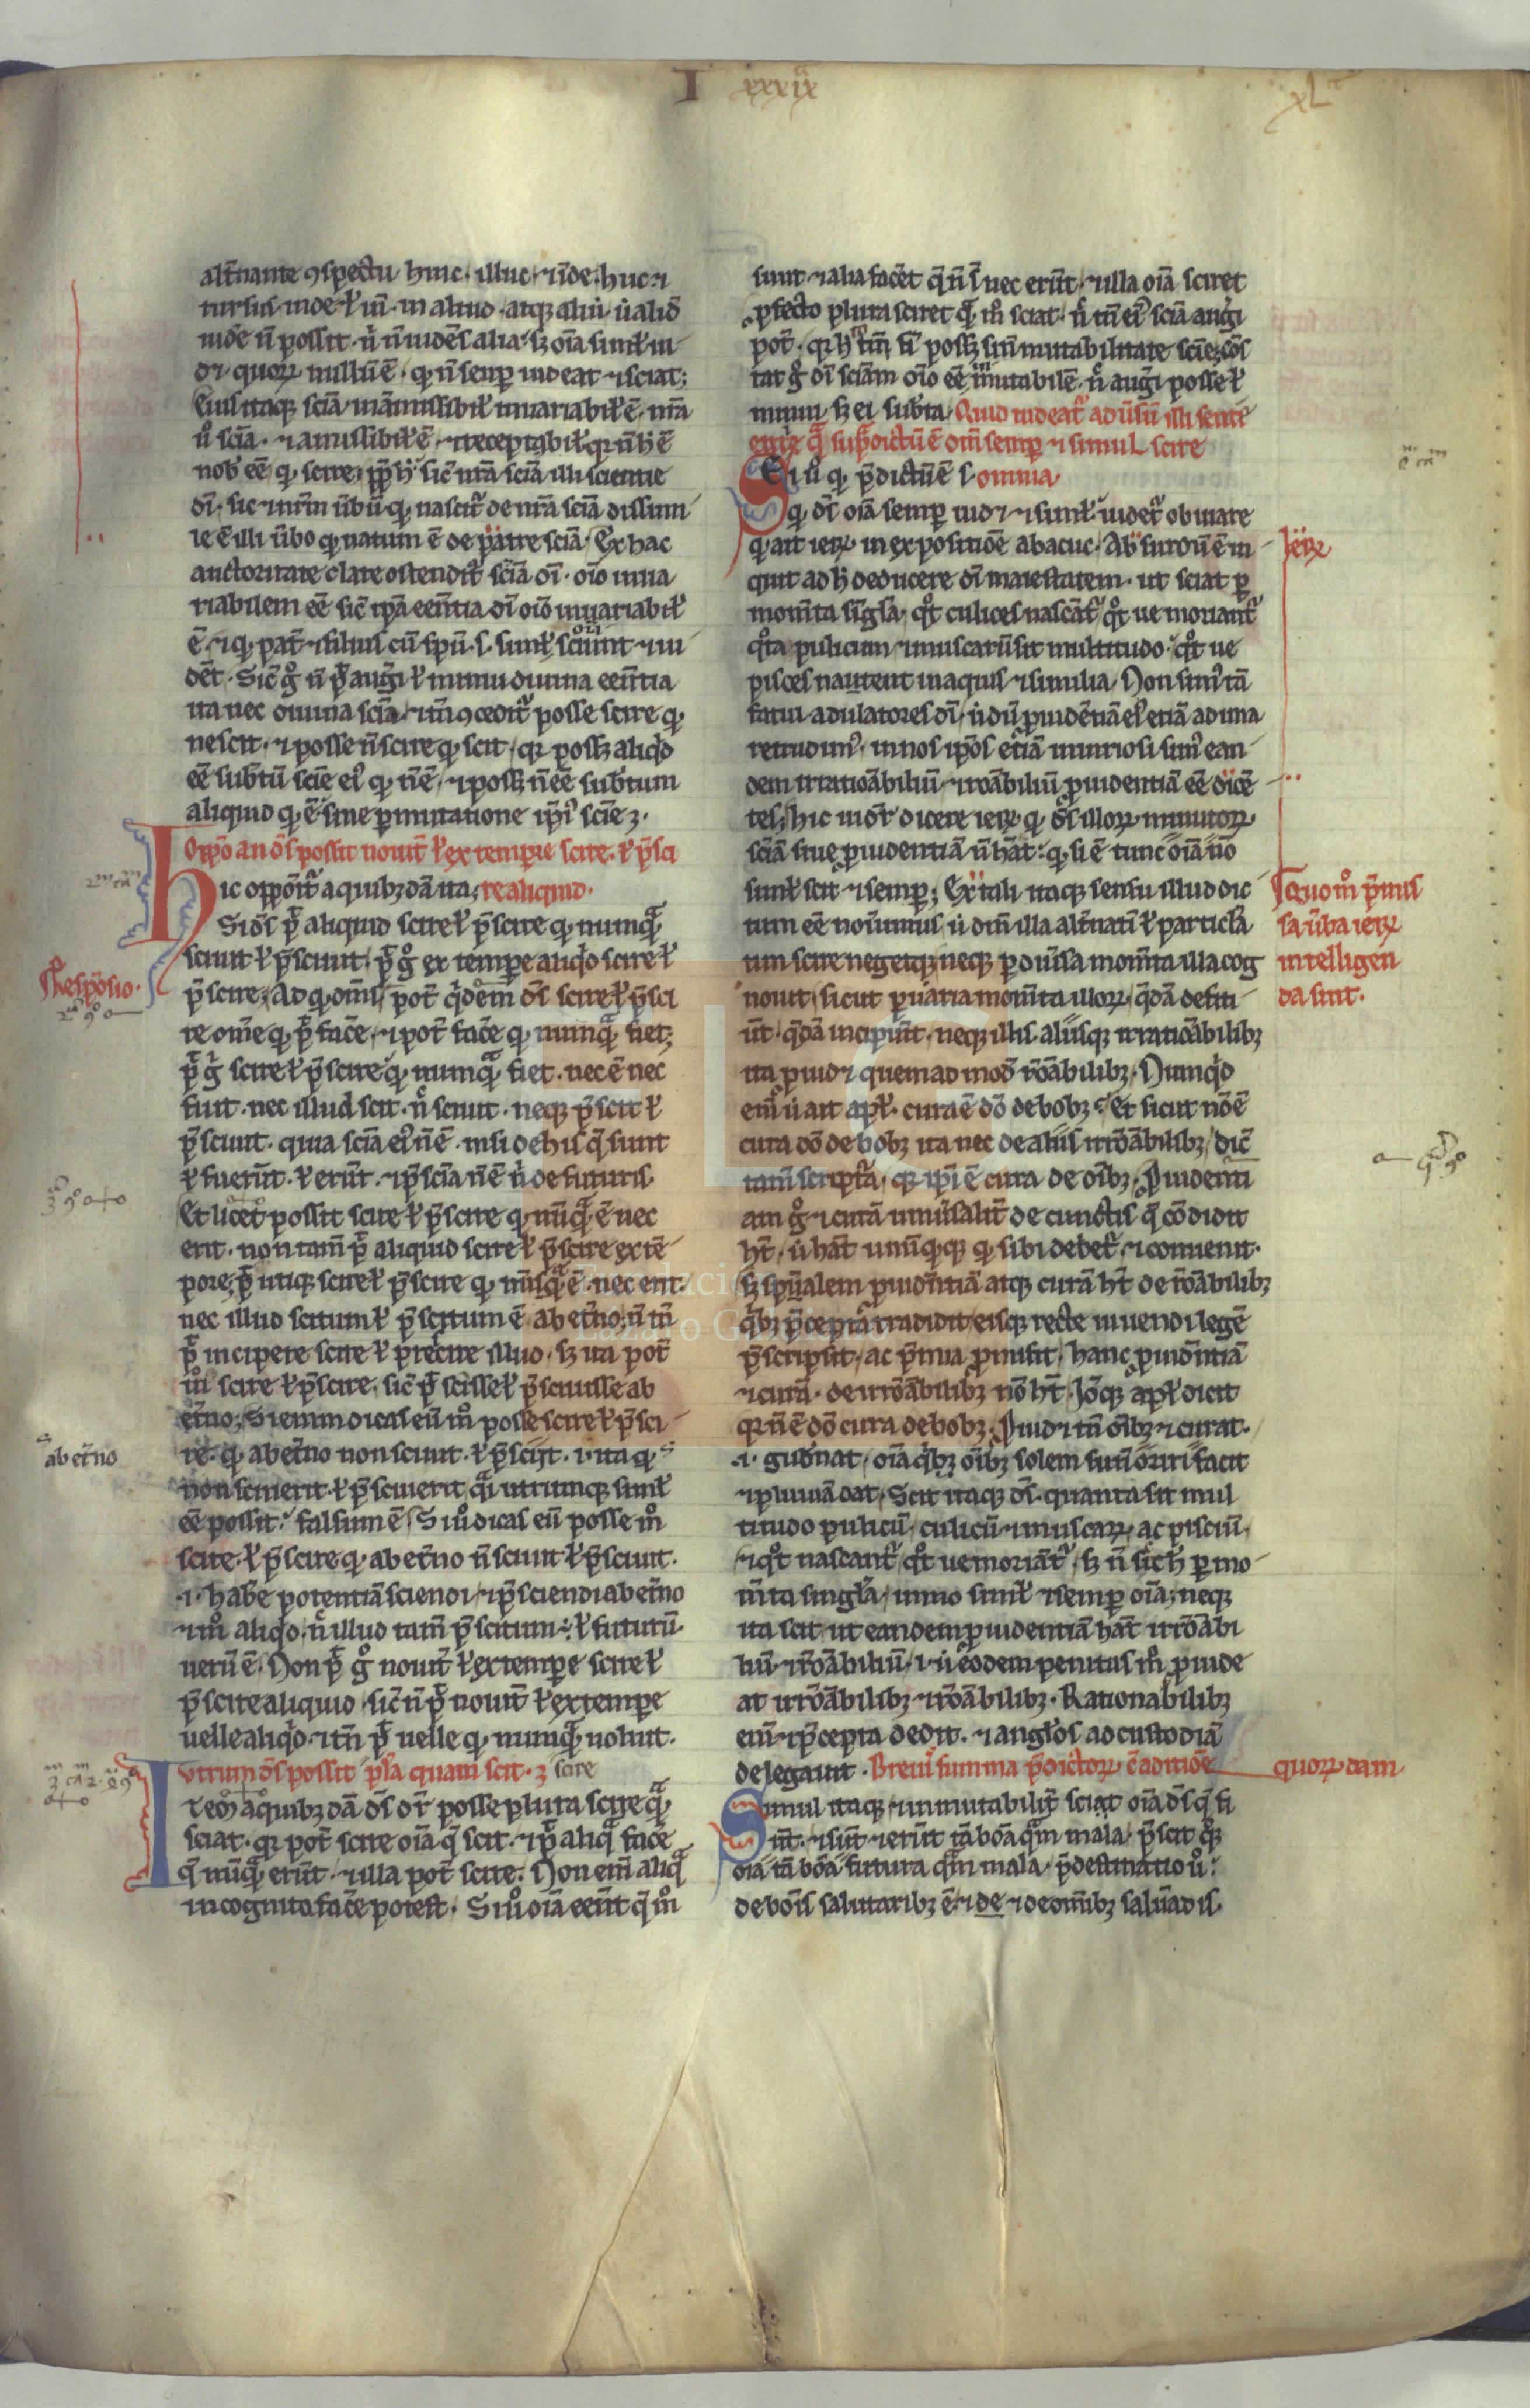 I xxxix
xL
alt̄nante ꝯspectu hinc · illuc · ⁊ īde · huc ⁊
rursus · inde ł in · in aliud · atqꝫ aliū · ū aliđ
inđe ñ possit · n̉ ñ uidēs alia · sꝫ oīa simł ui
det quoꝝ nullū ē · qđ ñ semꝑ uideat ⁊ sciat ;
Eius itaqꝫ scīa inamissibił ⁊ inuariabił ē · nr̄a
ū scīa · ⁊ amissibił ē ⁊ receptabił qꝛ ñ h̄ ē
nob̄ eē qđ scire ꝓpt̄ h̄ sic̄ nr̄a scīa illi scientie
dī · sic ⁊ nr̄m ūbū qđ nascit̄ de nr̄a scīa dissimi
le ē illi ūbo qđ natum ē de pat̄re scīa / Ex hac
auctoritate clare ostendit̄ scīā dī · oīo inua
riabilem eē sic̄ ip̄a eēntia dī oīo inuariabił
ē · ⁊ qđ pat̄ ⁊ filius cū sp̄ū · s · simł sciunt ⁊ ui
dēt · Sic̄ g̊ ñ p̄t augi ł minui diuina eēntia
ita nec diuina scīa · ⁊ tn̄ ꝯcedit̄ posse scire qđ
nescit · ⁊ posse ñ scire qđ scit · qꝛ possꝫ aliqđ
eē subt̄ū scīe ei⁹ qđ ñ ē · ⁊ possꝫ ñ eē subt̄um
aliquid qđ ē · sine ꝑmutatione ip̄i⁹ scīe ·
Oppō an dś possit nouit̄ ł ex tempore scire · ł p̄sci
hic opponit̄ a quibꝫdā ita ; re aliquid ·
Si dś p̄t aliquid scire ł p̄scire qđ numqꝫ
sciuit ł p̄sciuit · p̄t g̊ ex tempe aliqđ scire ł
Respōsio ·
p̄scire ; Ad qđ dīmus / pot̄ qidem dś scire ł p̄sci
re om̄e qđ p̄t facē · ⁊ pot̄ facē qđ numqꝫ fiet ;
p̄t g̊ scire ł p̄scire qđ numqꝫ fiet · nec ē nec
fuit · nec illud scit · n̉ sciuit · neqꝫ p̄scit ł
p̄sciuit · quia scīa ei⁹ ñ ē · nisi de his q̄ sunt
ł fuer̄t · ł er̄t · ⁊ p̄scīa ñ ē n̉ de futuris ·
Et licet possit scire ł p̄scire qđ nūqꝫ ē nec
erit · non tam̄ p̄t aliquid scire ł p̄scire ex tē
pore ; p̄t utiqꝫ scire ł p̄scire qđ nūqꝫ ē · nec erit ·
nec illud scitum ł p̄scitum ē ab et̄no ; ñ tn̄
p̄t incipere scire ł p̄scire illud · sꝫ ita pot̄
m̊ scire ł p̄scire · sic̄ p̄t scisse ł p̄sciuisse ab
et̄no ; Si enim dicas eū m̊ posse scire ł p̄sci
re · qđ ab et̄no non sciuit · ł p̄sciit · i · ita qđ
ab et̄no
non scierit · ł p̄sciuerit / qi utrumqꝫ simł
eē possit ; falsum ē / Si ū dicas eū posse m̊
scire · ł p̄scire qđ ab et̄no ñ sciuit ł p̄sciuit ·
· i · habe potentiā sciendi / ⁊ p̄sciendi ab et̄no
⁊ m̊ aliqđ · n̉ illud tam̄ p̄scitum ł futurū
uerū ē · Non p̄t g̊ nouit̄ ł ex tempe scire ł
p̄scire aliquid / sic̄ ñ p̄t nouit̄ ł ex tempe
uelle aliqđ · ⁊ tn̄ p̄t uelle qđ numqꝫ uoluit ·
Vtrum dś possit plura quam scit · scire
Item a quibꝫdā dś dr̄ posse plura scire qꝫ
sciat · qꝛ pot̄ scire oīa q̄ scit · ⁊ p̄t aliq̄ facē
q̄ nūqꝫ er̄t · ⁊ illa pot̄ scire · Non em̄ aliq̄
incognita facē potest · Si ū oīa eēnt q̄ m̊
sunt ⁊ alia facēt q̄ ñ s̄t nec er̄t · ⁊ illa oīa sciret
ꝓfecto plura sciret qꝫ m̊ sciat · n̉ tn̄ ei⁹ scīā augi
pot̄ · qꝛ h̄ tm̄ fi possꝫ sine mutabilitate scīe ; cōs
tat g̊ dī sciām oīo eē īmutabilē · n̉ augi posse ł
minui · sꝫ ei subt̄a · Quid uideat̄ aduersū illi sente
entie q̄ supdictū ē dm̄ semꝑ ⁊ simul scire
Ei ū qđ p̄dictū ē · s · omnia ·
qđ dś oīa semꝑ uidet ⁊ simł uidet̄ obuiare
qđ ait ieꝝ in expositiōe abacuc · Absurdū ē in
Ieꝝ
quit ad h̄ deducere dī maiestatem · ut sciat ꝑ
momt̄a sīgla · qt̄ culices nascāt̄ qt̄ ue moriant̄
q̄ta pulicum ⁊ muscarū sit multitudo · qt̄ ue
pisces natent in aquis ⁊ similia · Non sim⁹ tā
fatui adulatores dī / ū dū ꝓuidētiā ei⁹ etiā ad ima
retrudim⁹ · in nos ipōs etiā iniuriosi sim⁹ ean
dem irratiōabiliū ⁊ rōabiliū ꝓuidentiā eē dicē
tes ; hic uidet̄ dicere ieꝝ qđ dś illoꝝ minutoꝝ
sciā siue ꝓuidentiā ñ hāt · qđ si ē tunc oīa nō
simł scit ⁊ semꝑ ; Ex tali itaqꝫ sensu illud dic
Quom̊ p̄mis
tum eē nouimus / ū dm̄ illa alt̄nati ł particla
sa ūba ieꝝ
tim scire neget ; neqꝫ ꝑ diūsa momt̄a illa cog
intelligen
nouit / sicut ꝑ uaria momt̄a illoꝝ / q̄dā defici
da sint ·
ūt · q̄dā incipiūt · neqꝫ illis aliisqꝫ irratiōabilibꝫ
ita ꝓuidet quemadmod̄ rōabilibꝫ · Nunqđ
em̄ ū ait apł · cura ē dō de bobꝫ ? Et sicut nō ē
cura dō de bobꝫ ita nec de aliis irrōabilibꝫ / dic̄
tam̄ scriptūa · qꝛ ip̄i ē cura de oībꝫ · Prouidenti
am g̊ ⁊ curā uniūsalit̄ de cunctis q̄ cōdidit
ht̄ · ū hāt unūqđqꝫ qđ sibi debet̄ ⁊ conuenit ·
sꝫ sp̄ualem ꝓuidētiā atqꝫ curā ht̄ de rōabilibꝫ
q̄bꝫ p̄cepta tradidit eisqꝫ recte uiuendi legē
p̄scripsit · ac p̄mia ꝓmisit / hanc ꝓuidētiā
⁊ curā · de irrōabilibꝫ nō ht̄ · Iōqꝫ apł dicit
qꝛ ñ ē dō cura de bobꝫ · Prouidet tn̄ oībꝫ ⁊ curat ·
· i · gubnat / oīa q̄bꝫ oībꝫ solem suū oriri facit
⁊ pluuiā dat / Scit itaqꝫ dś · quanta sit mul
titudo pulicū / culicū ⁊ muscaꝝ / ac pisciū ·
⁊ qt̄ nascant̄ / qt̄ ue moriāt̄ / sꝫ ñ scit h̄ ꝑ mo
mt̄a singla / immo simł ⁊ semꝑ oīa ; neqꝫ
ita scit ut eandem ꝓuidentiā hāt irrōabi
liū ⁊ rōabiliū · i · ū eodem penitus m̊ ꝓuide
at irrōabilibꝫ ⁊ rōabilibꝫ · Rationabilibꝫ
em̄ ⁊ p̄cepta dedit · ⁊ anglos ad custodiā
delegauit · Breui⁹ summa p̄dictoꝝ c̄ aditiōe quoꝝdam
Simul itaqꝫ ⁊ immutabilit̄ sciat oīa dś q̄ fi
ūt · ⁊ sūt ⁊ er̄t tā bōa qm̄ mala · p̄scit qꝫ
oīa tā bōa futura qm̄ mala · p̄destinatio ū ·
de bonis salutaribꝫ ē · ⁊ de ⁊ de om̄ibꝫ saluādis ·